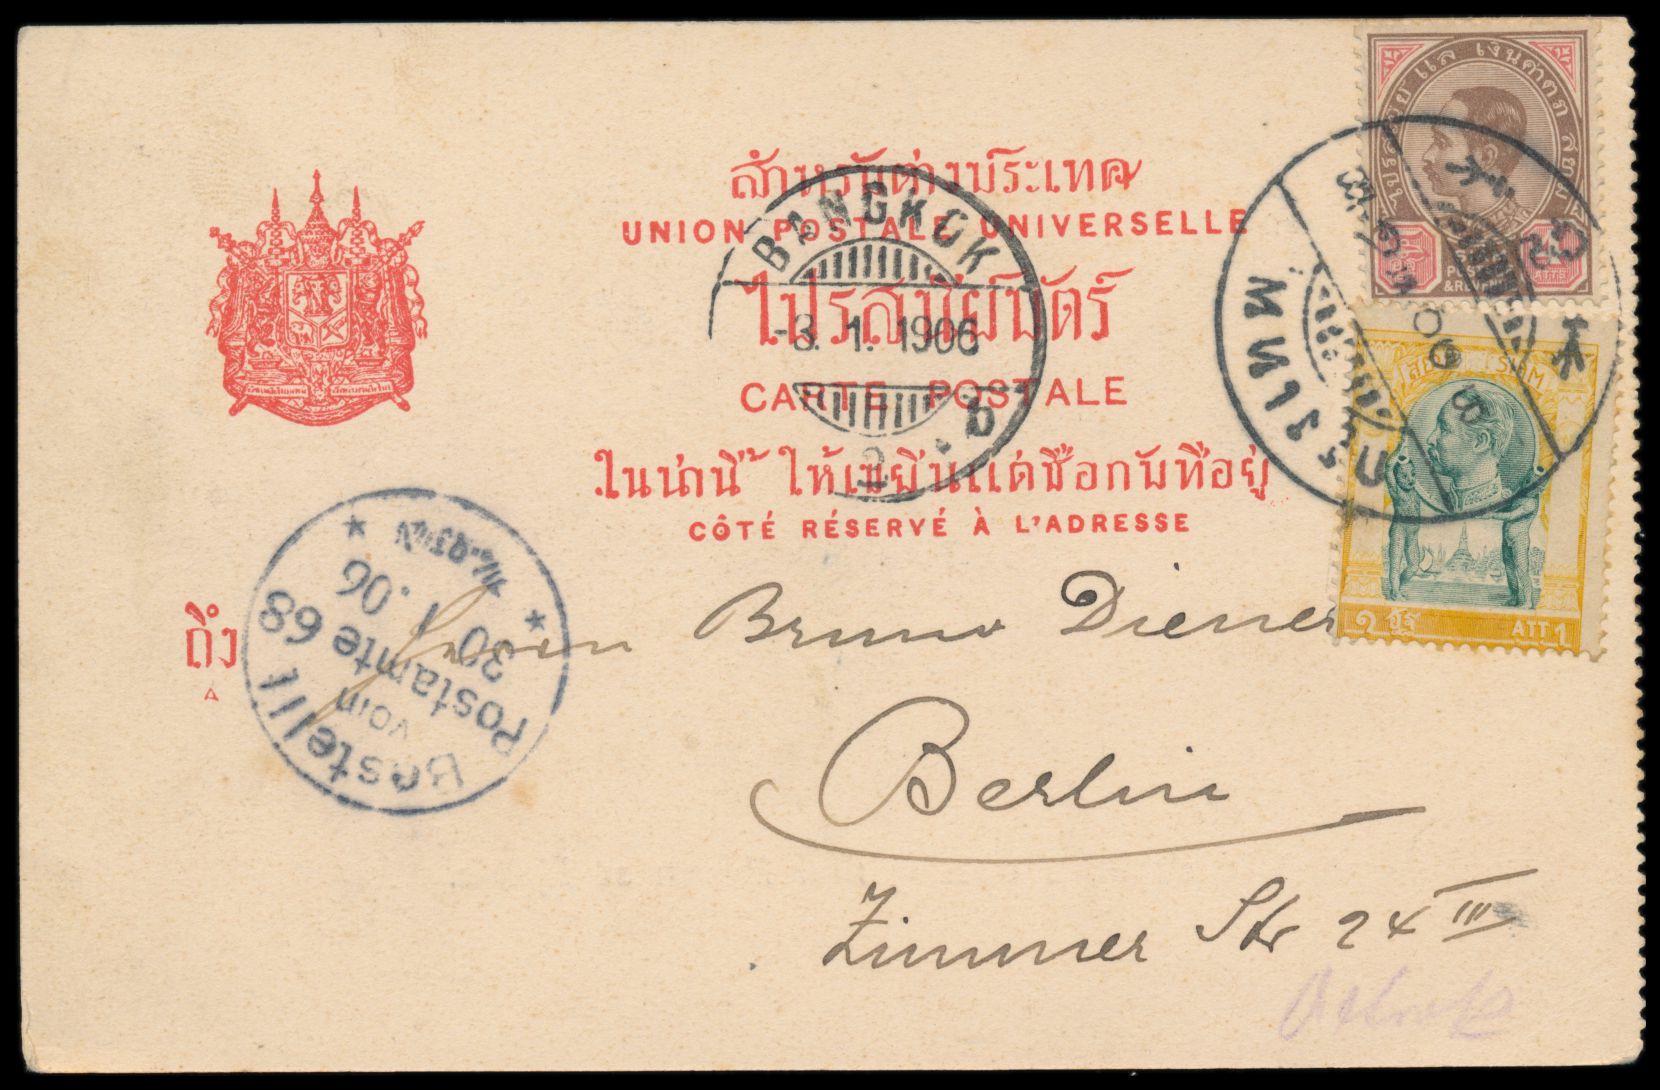 สำหรับต่างประเทศ
UNION POSTALE UNIVERSELLE
ไปรสนียบัตร์
CARTE POSTALE
ในน่านี้ ให้เขียนแต่ชื่อกับที่อยู่
CÔTÉ RÉSERVÉ À L'ADRESSE
ถึง
A
BANGKOK
-3. 1. 1906
b
2
กรุงเทพ
ไปรสนีย์ แล เงินตาตภ สยาม
ATTS
SIAM
๑ อัฐ
ATT 1
Bestellt
vom
Postamte 68
30 1.06
Herrn Bruno Diener
Berlin
Zimmer Str 24 III